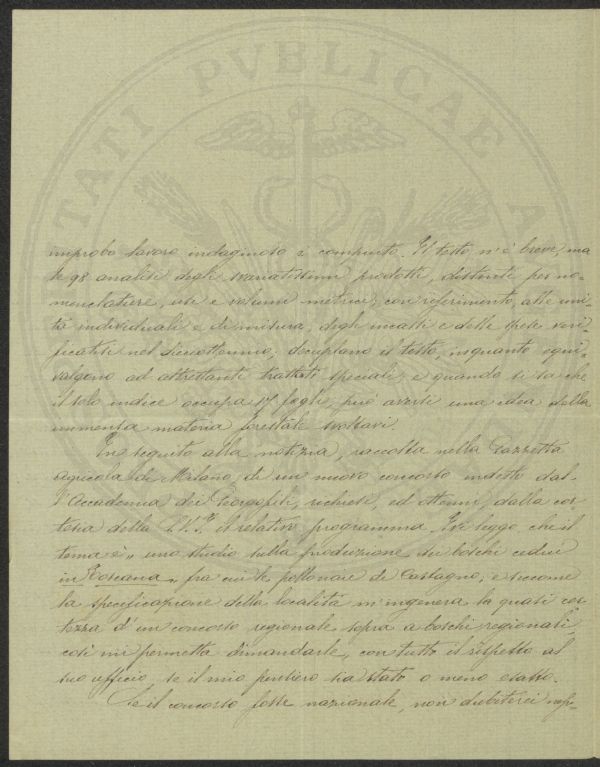 TATI PVBLICAE A
improbo lavoro indaginoso è compiuto. Il testo n'è breve, ma
le 98 analisi degli svariatissimi prodotti, distinti per no-
menclature, usi e volumi metrici, con riferimento alle uni-
tà individuali e di misura, degli incassi e delle spese veri-
ficatisi nel diciottennio, decuplano il testo, inquanto equi-
valgono ad altrettanti trattati speciali, e quando si sa che
il solo indice occupa 17 fogli, può aversi una idea della
immensa materia forestale svoltavi.
In seguito alla notizia, raccolta nella Gazzetta
agricola di Milano, di un nuovo concorso indetto dal-
l'Accademia dei Georgofili, richiesi, ed ottenni, dalla cor-
tesia della S. V. I. il relativo programma. Ivi leggo che il
tema è „ uno studio sulla produzione dei boschi cedui
in Toscana „ fra cui le pollonaie di Castagno, e siccome
la specificazione della località m'ingenera la quasi cer-
tezza d'un concorso regionale sopra a boschi regionali,
così mi permetta dimandarle, con tutto il rispetto al
suo ufficio, se il mio pensiero sia stato o meno esatto.
Se il concorso fosse nazionale, non dubiterei